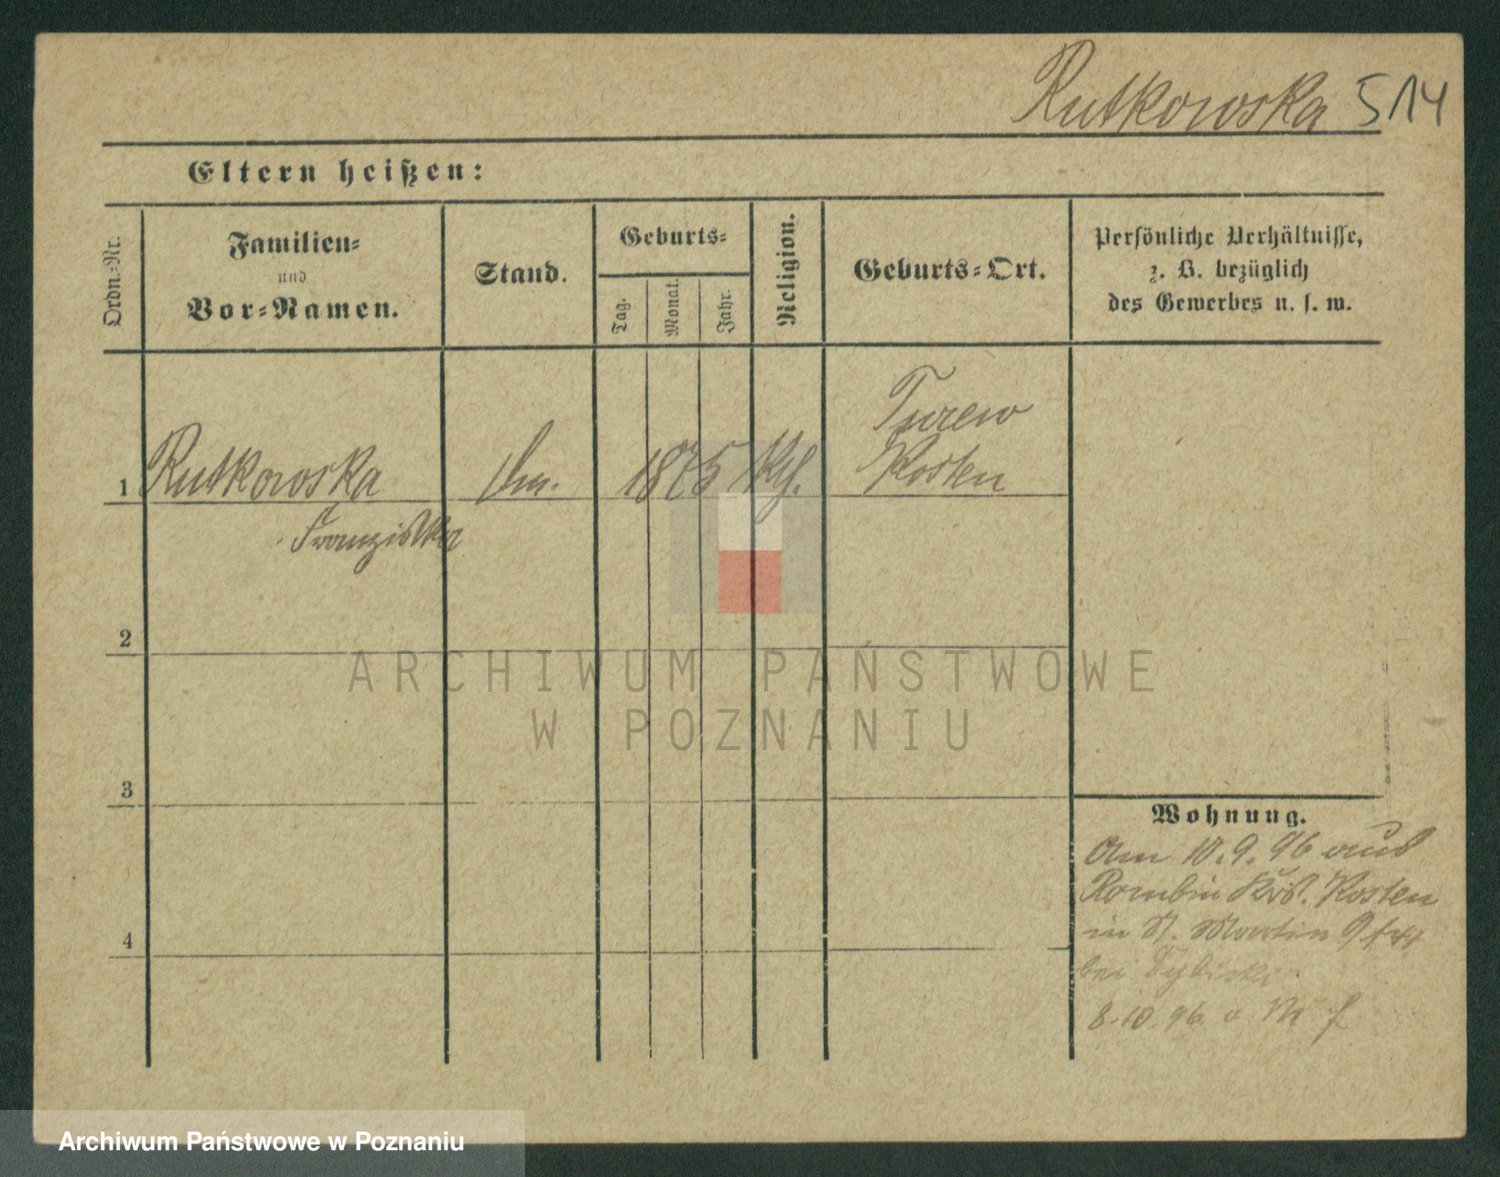 Rutkowska 514
Eltern heißen:
Ordn.-Nr.
Familien-
und
Vor-Namen.
Stand.
Geburts-
Tag.
Monat.
Jahr.
Religion.
Geburts-Ort.
Persönliche Verhältnisse,
z. B. bezüglich
des Gewerbes u. s. w.
1 Rutkowska 1875 Kth.
Franziska
Turew
Kosten
2
3
4
Wohnung.
Am 10.9.96 aus
Rombin Krs. Kosten
in St. Martin 9
bei
8.10.96
ARCHIWUM PAŃSTWOWE
W POZNANIU
Archiwum Państwowe w Poznaniu